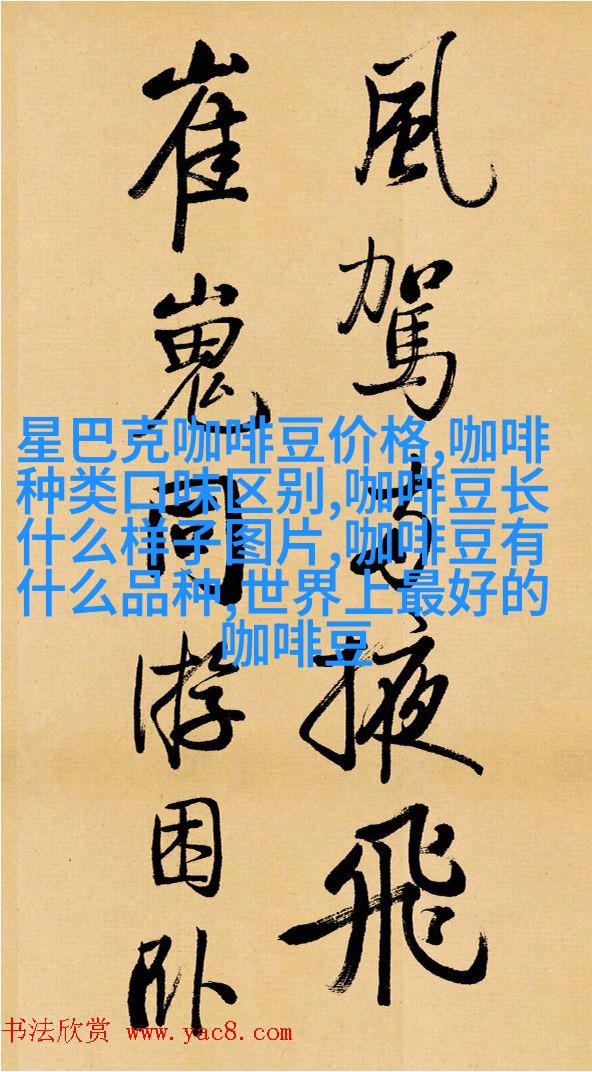 風駕掖飛
崔嵬同游困卧
星巴克咖啡豆价格,咖啡
种类口味区别,咖啡豆长
什么样子图片,咖啡豆有
什么品种,世界上最好的
咖啡豆
书法欣赏 www.yac8.com